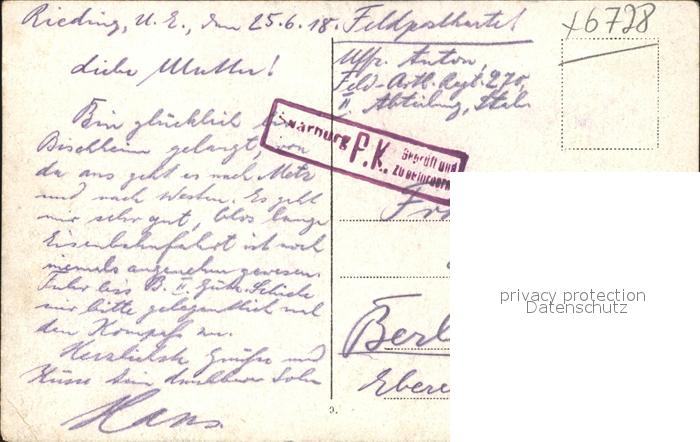 Rieding, U. E., den 25.6.18.
Feldpostkarte!
+6728
Uffz. Anton,
Feld-Artl. Regt. 270
II. Abteilung, Stab.
Liebe Mutter!
Bin glücklich
Bischheim gelangt, von
da aus geht es nach Metz
und nach Westen. Es geht
mir sehr gut, blos lange
Eisenbahnfahrt ist noch
niemals angenehm gewesen.
Fuhr bis B. II. Güte. Schicke
mir bitte gelegentlich mal
den Kompass zu.
Herzlichste Grüsse und
Küsse Dein dankbarer Sohn
Hans.
Saarburg
P.K.
Geprüft und
zu befördern
Fr
Berl
Ebere
9.
privacy protection
Datenschutz